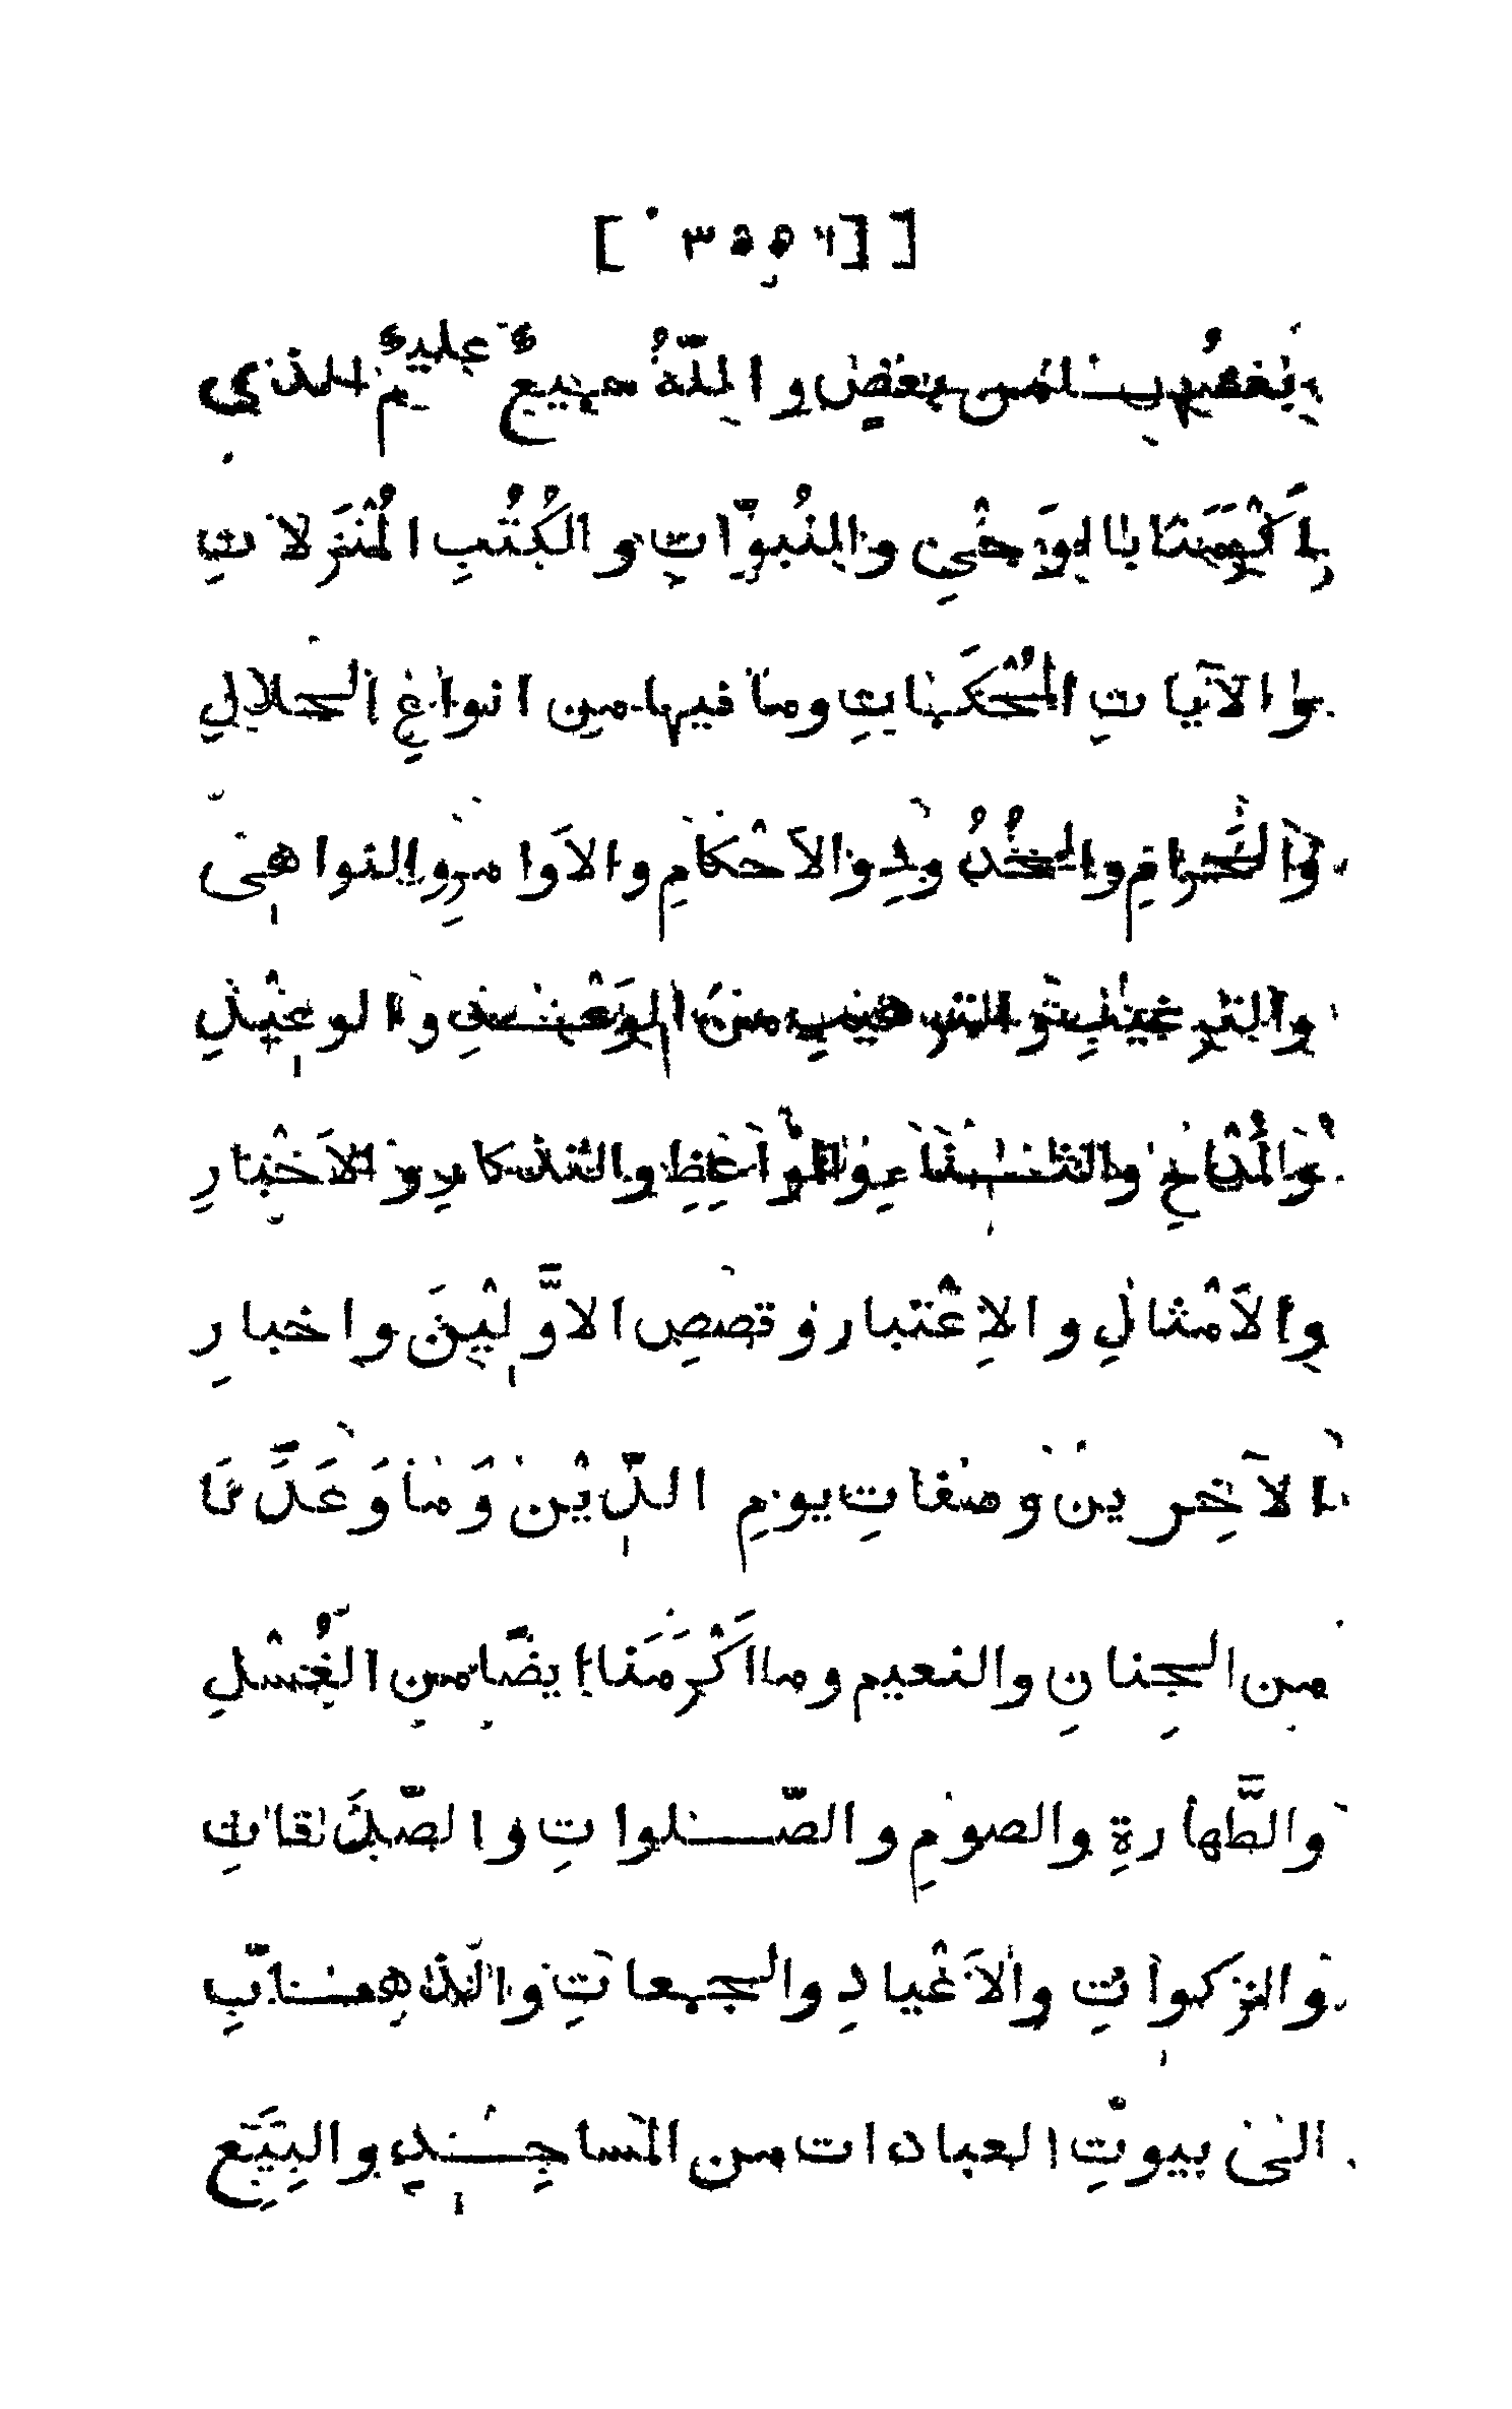 بعضُها من بعضٍ واللّهُ سميعٌ عليمٌ الذي
اَكْرَمَنا بالوَحْيِ والنُبوّاتِ والكُتُبِ المُنْزَلاتِ
والآياتِ المُحْكَماتِ وما فيها من انواعِ الحلالِ
والحَرامِ والحُدُودِ والاَحْكامِ والاَوامرِ والنواهى
والترغيبِ والترهيبِ من الوَعْدِ والوعيْدِ
والمواعِظِ والتذكارِ والاَخْبارِ
والاَمْثالِ والاِعْتبار وقصصِ الاَوَّلِيْنَ واخبارِ
الآخِرين وصفاتِ يومِ الدّيْن وَما وَعَدَنا
من الجِنانِ والنعيم وما اَكْرَمَنا ايضًا من الغُسْلِ
والطَّهارةِ والصومِ والصّلواتِ والصّدَقاتِ
والزكواتِ والاَعْيادِ والجمعاتِ والذّهابِ
الى بيوتِ العبادات من المساجِدِ والبِيَع